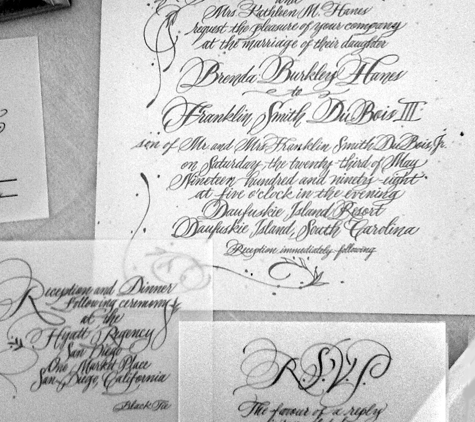 and
Mrs. Kathleen M. Hanes
request the pleasure of your company
at the marriage of their daughter
Brenda Burkley Hanes
to
Franklin Smith DuBois, III
son of Mr and Mrs. Franklin Smith DuBois, Jr.
on Saturday, the twenty third of May
Nineteen hundred and ninety-eight
at five o'clock in the evening
Daufuskie Island Resort
Daufuskie Island, South Carolina
Reception immediately following
Reception and Dinner
following ceremony
at the
Hyatt Regency
San Diego
One Market Place
San Diego, California
Black Tie
R.S.V.P
The favour of a reply